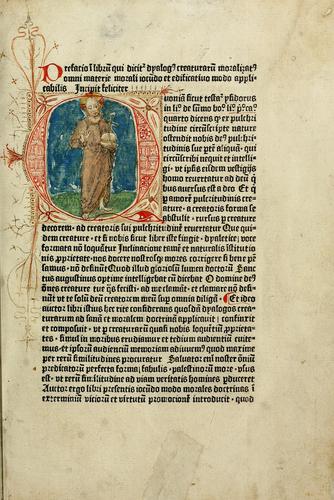 Prefatio ĩ librũ qui dicit᷑ dyalogꝯ creaturarũ moralizatꝯ
omni materie morali iocũdo et edificativo modo appli-
cabilis Incipit feliciter
Quoniã sicut testat᷑ ysidorus
in li.
quarto dicens ꝙ ex pulchri
tudine circũscripte nature
ostendit nobis deꝰ pulchri
tudinis sue ptẽ aliquã. qui
circũscribi nequit et intelli
gi. vt ipis eisdem vestigijs
homo reuertatur ad deũ q̃
bus auersus est a deo Et q̃
p amorẽ pulchritudinis cre
ature. a creatoris forma se
abstulit. rursus p creature
decorem. ad creatoris sui pulchritudinẽ reuertatur Que qui
dem creature. et si nobis sicut liber iste fingit. dyaletice, voce
formata nõ loquũtur Inclinatione tamẽ et naturalis istitutio
nis ꝓprietate. nos docere nostrosꝙ mores corrigere si bene pẽ
samus. nõ definũt Exsud illud gloriosũ lumen doctorũ Sanc
tus augustinus optime intelligebat cũ dicebat O domine deꝰ
õnes creature tue q̃s fecisti. ad me clamãt. et clamare nõ desi
nũt vt te solũ deũ creatorem meũ sup omnia diligã. Et ideo
auctor libri istius hec rite considerans quosdã dyalogos crea
turarum ad sanã et moralem doctrinã applicauit; confinxit
et composuit. vt p creaturarũ quasi nobis loquẽtiũ ꝓprieta-
tes. simul in moribus erudiamur et tedium audientiũ euite-
mus. et ipsorũ audienciũ memoriam adiuuemꝰ quod maxime
per rerũ similitudines procuratur Saluator eni noster oĩniũ
predicatorũ perfecta forma; fabulis. palestinorũ more. vsus
est. vt rerũ similitudine ad viam veritatis homines pduceret
Auctor ergo libri presentis iocũdo modo morales doctrinas ĩ
exterminiũ viciorũ et virtutũ promocionẽ introducit. quod